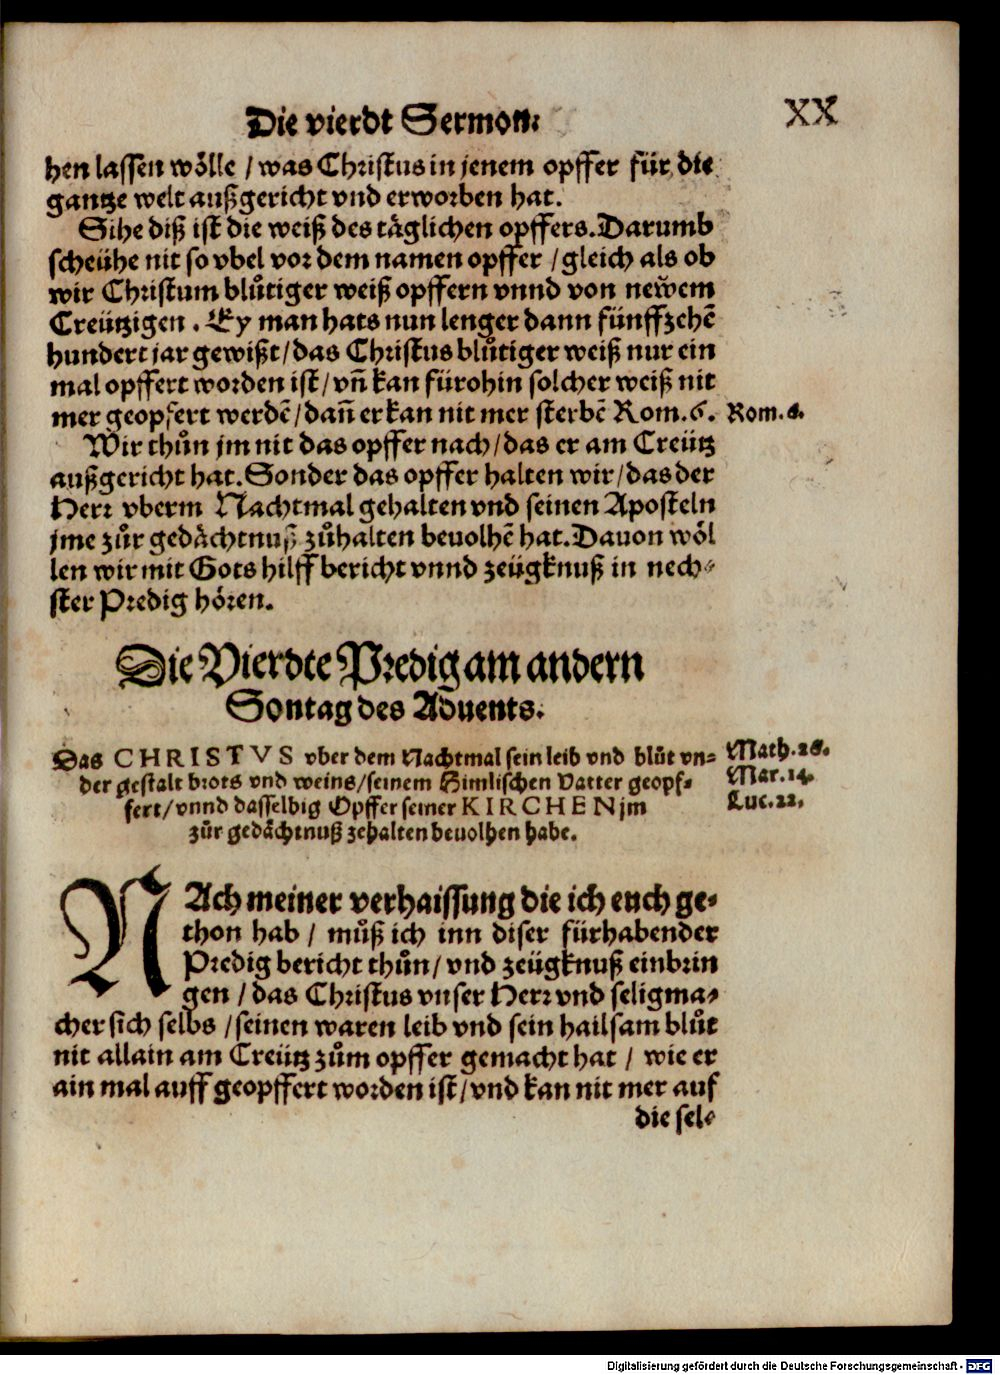 Die vierdt Sermon.
XX
hen lassen wölle / was Christus in jenem opffer für die
gantze welt außgericht vnd erworben hat.
Sihe diß ist die weiß des täglichen opffers. Darumb
scheühe nit so vbel vor dem namen opffer / gleich als ob
wir Christum blůtiger weiß opffern vnnd von newem
Creützigen. Ey man hats nun lenger dann fünffzehẽ
hundert jar gewißt / das Christus blůtiger weiß nur ein
mal opffert worden ist / vñ kan fürohin solcher weiß nit
mer geopfert werdẽ / dañ er kan nit mer sterbẽ Rom. 6.
Rom. 6.
Wir thůn jm nit das opffer nach / das er am Creütz
außgericht hat. Sonder das opffer halten wir / das der
Herr vberm Nachtmal gehalten vnd seinen Aposteln
jme zůr gedächtnuß zůhalten beuolhẽ hat. Dauon wöl
len wir mit Gots hilff bericht vnnd zeügknuß in nech-
ster Predig hören.
Die Vierdte Predig am andern
Sontag des Aduents.
Das CHRISTVS vber dem Nachtmal sein leib vnd blůt vn-
der gestalt brots vnd weins / seinem Himlischen Vatter geopf-
fert / vnnd dasselbig Opffer seiner KIRCHEN jm
zůr gedächtnuß zehalten beuolhen habe.
Math. 26.
Mar. 14.
Luc. 22.
NAch meiner verhaissung die ich euch ge-
thon hab / můß ich inn diser fürhabender
Predig bericht thůn / vnd zeügknuß einbrin
gen / das Christus vnser Herr vnd seligma-
cher sich selbs / seinen waren leib vnd sein hailsam blůt
nit allain am Creütz zům opffer gemacht hat / wie er
ain mal auff geopffert worden ist / vnd kan nit mer auf
die sel-
Digitalisierung gefördert durch die Deutsche Forschungsgemeinschaft - DFG